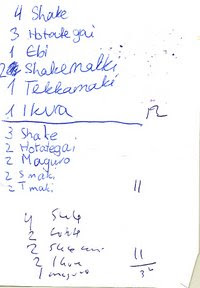 4 Shake
3 Hotategai
1 Ebi
2 Shakemakki
1 Tekkamaki
1 Ikura 12
3 Shake
2 Hotategai
2 Maguro
2 S maki
2 T maki 11
4
2
2
2 Ikura 11
1 maguro